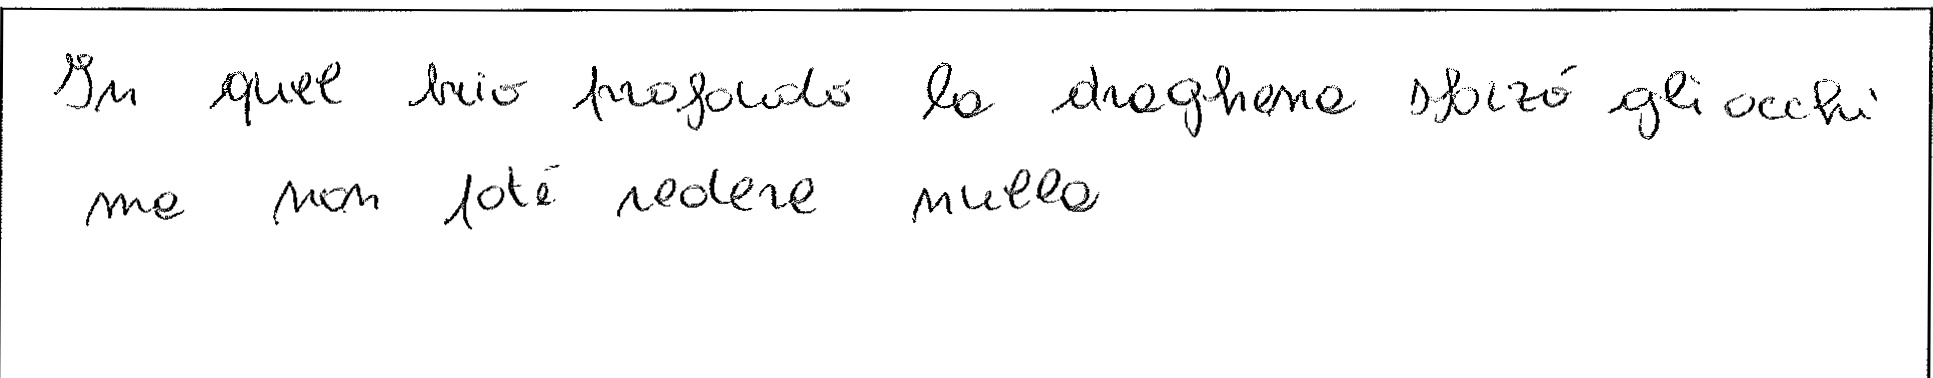 In quel buio profondo la draghena sforzó gli occhi
ma non poté vedere nulla